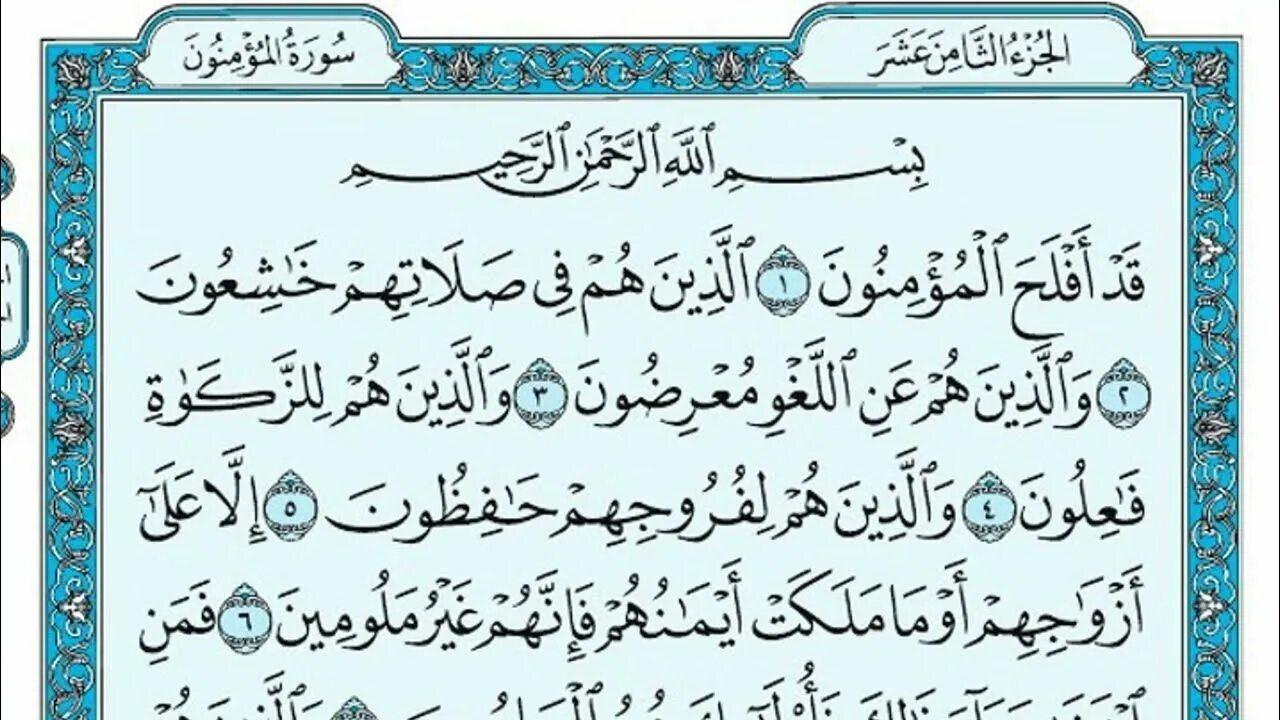 الجُزْءُ الثَّامِنَ عَشَرَ
سُورَةُ المُؤْمِنُونَ
بِسْمِ ٱللَّهِ ٱلرَّحْمَٰنِ ٱلرَّحِيمِ
قَدْ أَفْلَحَ ٱلْمُؤْمِنُونَ ١ ٱلَّذِينَ هُمْ فِي صَلَاتِهِمْ خَٰشِعُونَ
٢ وَٱلَّذِينَ هُمْ عَنِ ٱللَّغْوِ مُعْرِضُونَ ٣ وَٱلَّذِينَ هُمْ لِلزَّكَوٰةِ
فَٰعِلُونَ ٤ وَٱلَّذِينَ هُمْ لِفُرُوجِهِمْ حَٰفِظُونَ ٥ إِلَّا عَلَىٰٓ
أَزْوَٰجِهِمْ أَوْ مَا مَلَكَتْ أَيْمَٰنُهُمْ فَإِنَّهُمْ غَيْرُ مَلُومِينَ ٦ فَمَنِ